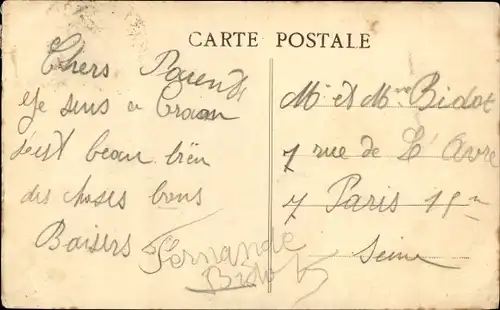 CARTE POSTALE
Chers Parends
Je suis a Craon
s'est beau bien
des choses bons
Baisers Fernande
Bidot
Mr et Mme Bidot
7 rue de L'Avre
7 Paris 15m
Seine